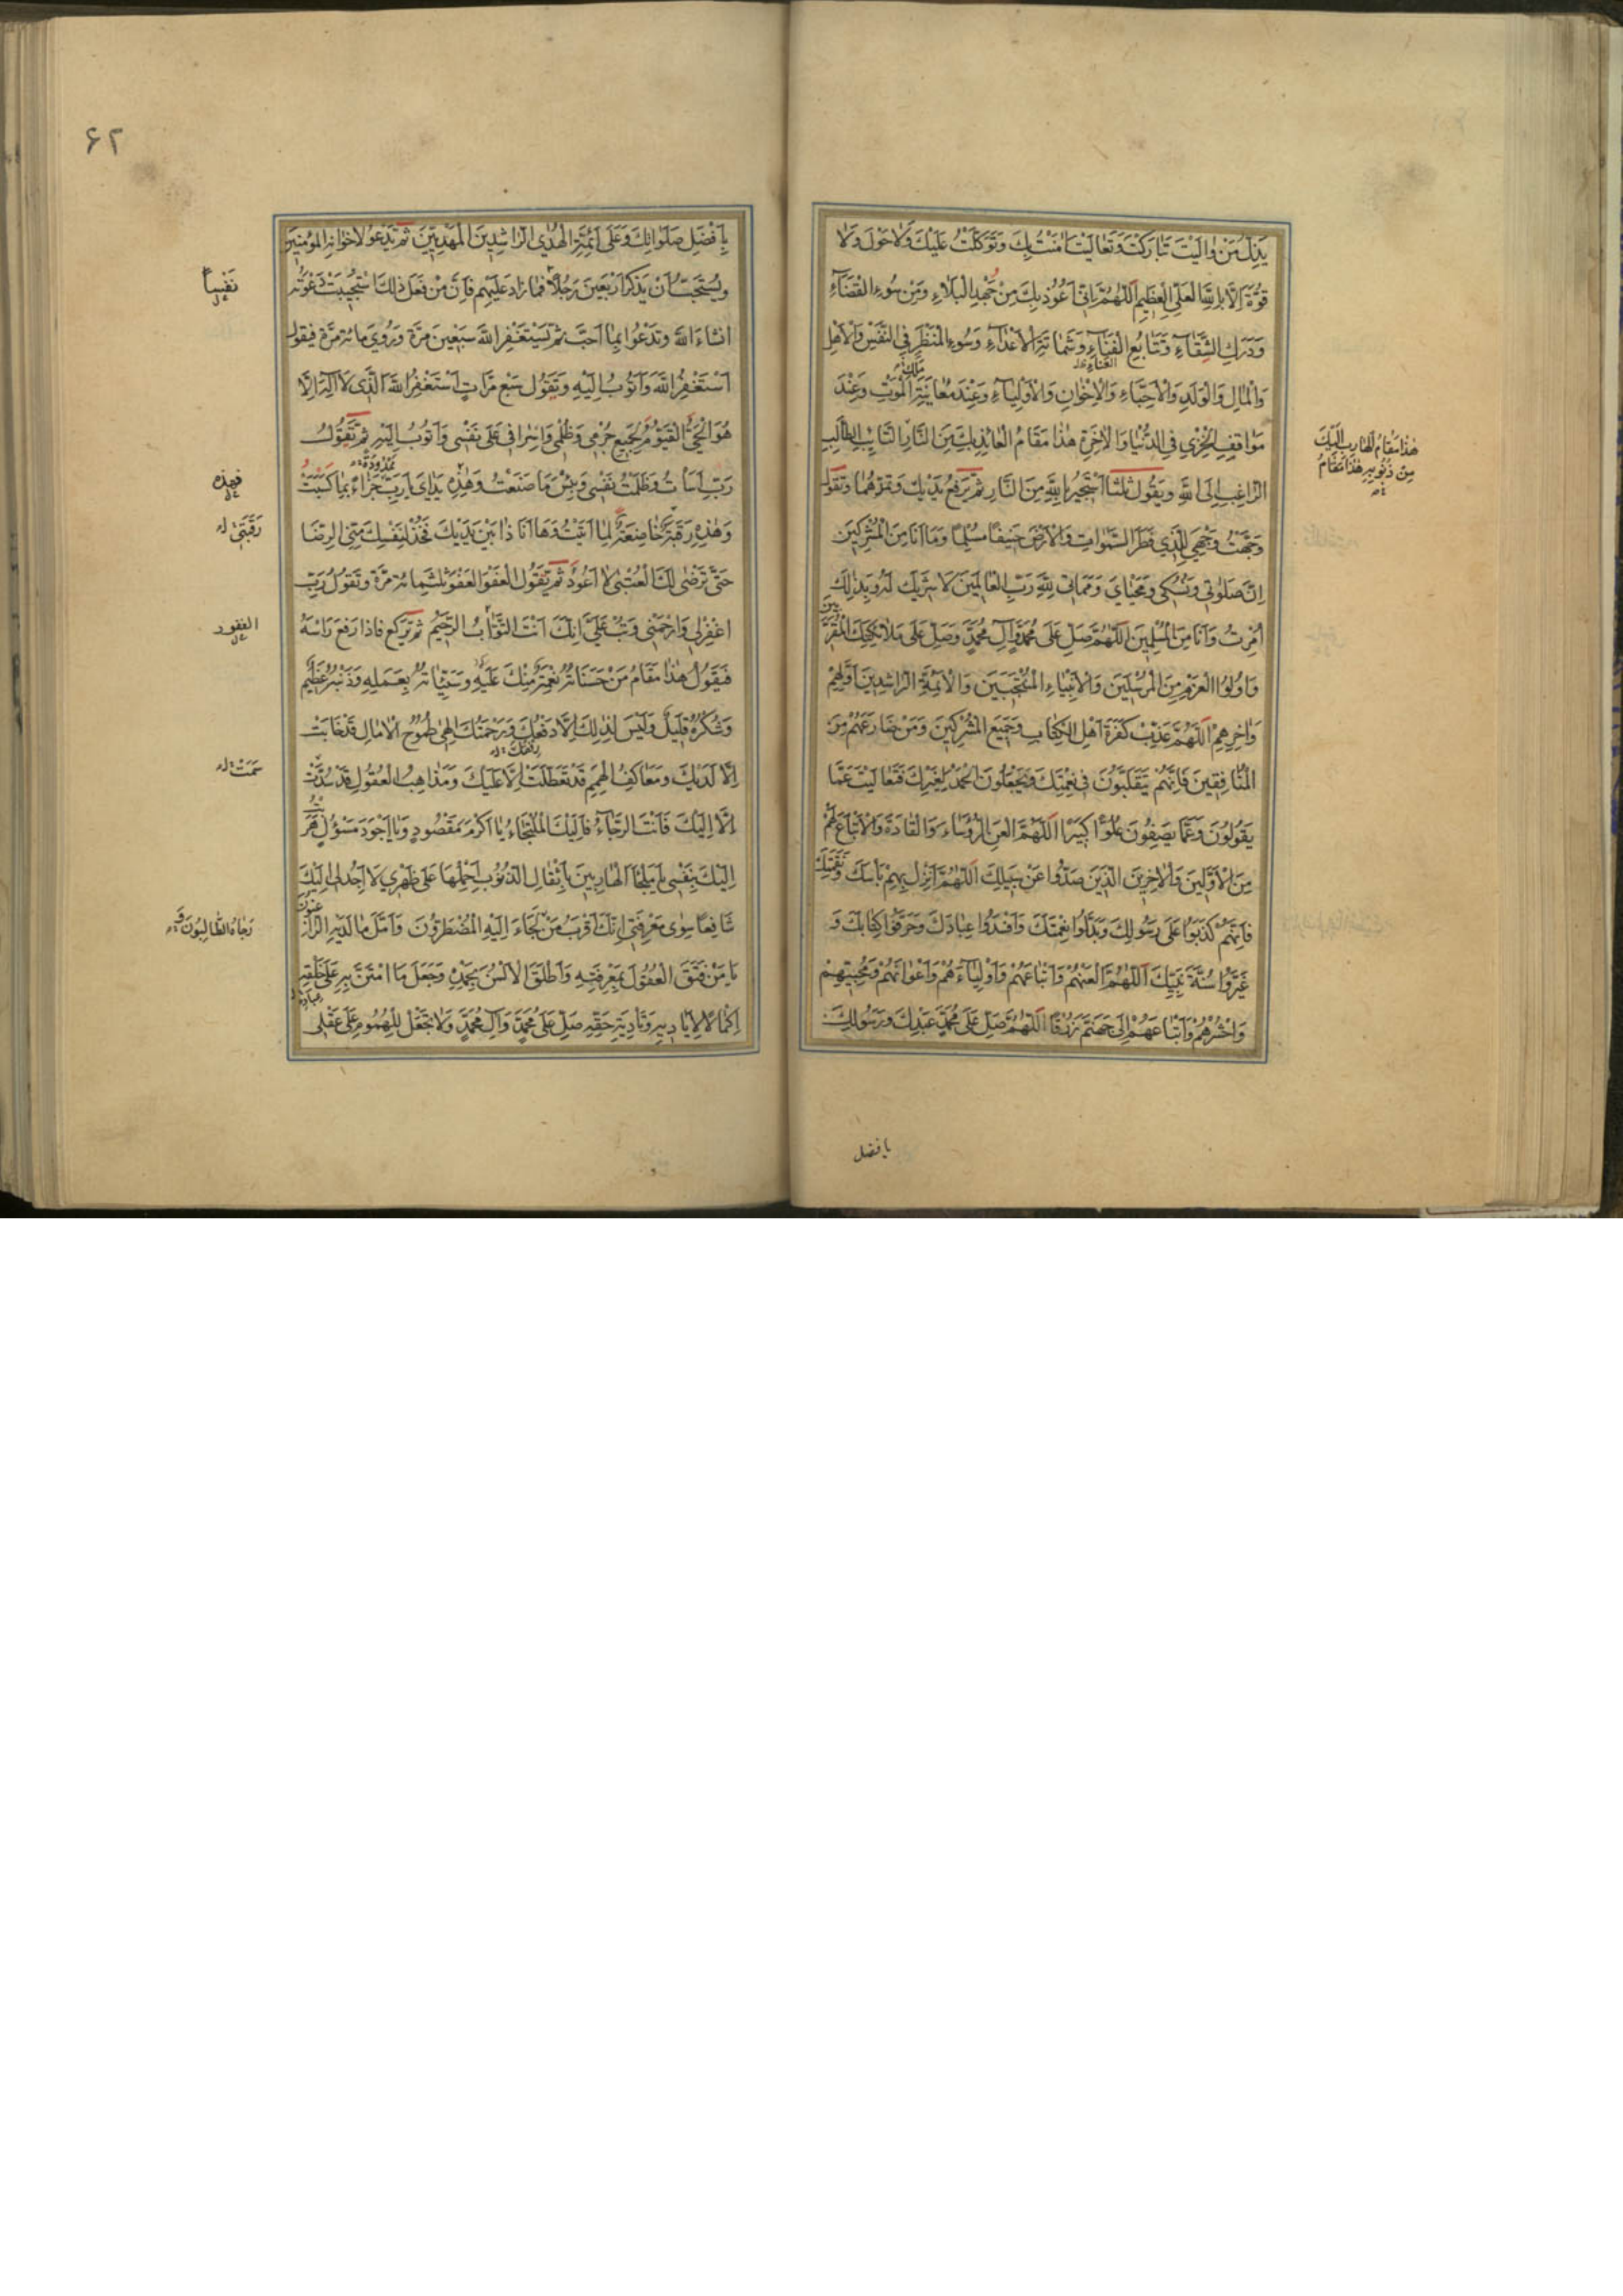 يَذِلُّ مَنْ وٰالَيْتَ تَبٰارَكْتَ وَتَعٰالَيْتَ اٰمَنْتُ بِكَ وَتَوَكَّلْتُ عَلَيْكَ وَلاٰ حَوْلَ وَلاٰ
قُوَّةَ اِلاّٰ بِاللّٰهِ الْعَلِيِّ الْعَظِيمِ اَللّٰهُمَّ اِنّي اَعُوذُ بِكَ مِنْ جُهْدِ الْبَلاٰءِ وَمِنْ سُوءِ الْقَضٰاءِ
وَدَرَكِ الشَّقٰاءِ وَتَتٰابُعِ الْفَنٰاءِ وَشَمٰاتَةِ الْاَعْدٰاءِ وَسُوءِ الْمَنْظَرِ فِي النَّفْسِ وَالْاَهْلِ
العناء
مَلَكِ
وَالْمٰالِ وَالْوَلَدِ وَالْاَحِبّٰاءِ وَالْاِخْوٰانِ وَالْاَوْلِيٰاءِ وَعِنْدَ مُعٰايَنَةِ الْمَوْتِ وَعِنْدَ
مَوٰاقِفِ الْخِزْيِ فِي الدُّنْيٰا وَالْاٰخِرَةِ هٰذٰا مَقٰامُ الْعٰائِذِ بِكَ مِنَ النّٰارِ التّٰائِبِ الطّٰالِبِ
هٰذٰا مَقٰامُ الْهٰارِبِ اِلَيْكَ
مِنْ ذُنُوبِهِ هٰذٰا مَقٰامُ
الرّٰاغِبِ اِلَى اللّٰهِ وَيَقُولُ ثَلٰثًا اَسْتَجِيرُ بِاللّٰهِ مِنَ النّٰارِ ثُمَّ تَرْفَعُ يَدَيْكَ وَتَمُدُّهُمٰا وَتَقُولُ
وَجَّهْتُ وَجْهِيَ لِلَّذِي فَطَرَ السَّمٰوٰاتِ وَالْاَرْضَ حَنِيفًا مُسْلِمًا وَمٰا اَنَا مِنَ الْمُشْرِكِينَ
اِنَّ صَلٰوتِي وَنُسُكِي وَمَحْيٰايَ وَمَمٰاتِي لِلّٰهِ رَبِّ الْعٰالَمِينَ لاٰ شَرِيكَ لَهُ وَبِذٰلِكَ
اُمِرْتُ وَاَنَا مِنَ الْمُسْلِمِينَ اَللّٰهُمَّ صَلِّ عَلىٰ مُحَمَّدٍ وَاٰلِ مُحَمَّدٍ وَصَلِّ عَلىٰ مَلاٰئِكَتِكَ الْمُقَرَّبِينَ
وَاُولُوا الْعَزْمِ مِنَ الْمُرْسَلِينَ وَالْاَنْبِيٰاءِ الْمُنْتَجَبِينَ وَالْاَئِمَّةِ الرّٰاشِدِينَ اَوَّلِهِمْ
وَاٰخِرِهِمْ اَللّٰهُمَّ عَذِّبْ كَفَرَةَ اَهْلِ الْكِتٰابِ وَجَمِيعَ الْمُشْرِكِينَ وَمَنْ ضٰارَعَهُمْ مِنَ
الْمُنٰافِقِينَ فَاِنَّهُمْ يَتَقَلَّبُونَ فِي نِعْمَتِكَ وَيَجْعَلُونَ الْحَمْدَ لِغَيْرِكَ فَتَعٰالَيْتَ عَمّٰا
يَقُولُونَ وَعَمّٰا يَصِفُونَ عُلُوًّا كَبِيرًا اَللّٰهُمَّ الْعَنِ الرُّؤَسٰاءَ وَالْقٰادَةَ وَالْاَتْبٰاعَ لَهُمْ
مِنَ الْاَوَّلِينَ وَالْاٰخِرِينَ الَّذِينَ صَدُّوا عَنْ سَبِيلِكَ اَللّٰهُمَّ اَنْزِلْ بِهِمْ بَأْسَكَ وَنَقِمَتَكَ
فَاِنَّهُمْ كَذَّبُوا عَلىٰ رَسُولِكَ وَبَدَّلُوا نِعْمَتَكَ وَاَفْسَدُوا عِبٰادَكَ وَحَرَّفُوا كِتٰابَكَ وَ
غَيَّرُوا سُنَّةَ نَبِيِّكَ اَللّٰهُمَّ الْعَنْهُمْ وَاَتْبٰاعَهُمْ وَاَوْلِيٰاءَهُمْ وَاَعْوٰانَهُمْ وَمُحِبِّيهِمْ
وَاحْشُرْهُمْ وَاَتْبٰاعَهُمْ اِلىٰ جَهَنَّمَ زُرْقًا اَللّٰهُمَّ صَلِّ عَلىٰ مُحَمَّدٍ عَبْدِكَ وَرَسُولِكَ
بافضل
۶۲
بِاَفْضَلِ صَلَوٰاتِكَ وَعَلىٰ اَئِمَّةِ الْهُدَي الرّٰاشِدِينَ الْمَهْدِيِّينَ ثُمَّ تَدْعُو لِاِخْوٰانِهِ الْمُؤْمِنِينَ
وَيُسْتَحَبُّ اَنْ يَذْكُرَ اَرْبَعِينَ رَجُلاً فَمٰا زٰادَ عَلَيْهِمْ فَاِنَّ مَنْ فَعَلَ ذٰلِكَ اسْتُجِيبَتْ دَعْوَتُهُ
نَفْسًا
انشاءَ اللّٰه وَتَدْعُو بِمٰا اَحَبَّ ثُمَّ تَسْتَغْفِرُ اللّٰهَ سَبْعِينَ مَرَّةً وَرُوِيَ مائة مَرَّةٍ فيقول
اَسْتَغْفِرُ اللّٰهَ وَاَتُوبُ اِلَيْهِ وَيَقُولُ سَبْعَ مَرّٰاتٍ اَسْتَغْفِرُ اللّٰهَ الَّذِي لاٰ اِلٰهَ اِلاّٰ
هُوَ الْحَيُّ الْقَيُّومُ لِجَمِيعِ جُرْمِي وَظُلْمِي وَاِسْرٰافِي عَلىٰ نَفْسِي وَاَتُوبُ اِلَيْهِ ثُمَّ تَقُولُ
رَبِّ اَسَأْتُ وَظَلَمْتُ نَفْسِي وَبِئْسَ مٰا صَنَعْتُ وَهٰذِهِ يَدٰايَ يٰا رَبِّ جَزٰاءً بِمٰا كَسَبَتْ
فهذه
وَهٰذِهِ رَقَبَةٌ خٰاضِعَةٌ لِمٰا اَتَيْتُ وَهٰا اَنَا ذٰا بَيْنَ يَدَيْكَ فَخُذْ لِنَفْسِكَ مِنّي الرِّضٰا
رَقَبَتِي
حَتّىٰ تَرْضىٰ لَكَ الْعُتْبىٰ لاٰ اَعُودُ ثُمَّ تَقُولُ الْعَفْوَ الْعَفْوَ ثلثمائة مَرَّةٍ وَتَقُولُ رَبِّ
اغْفِرْ لِي وَارْحَمْنِي وَتُبْ عَلَيَّ اِنَّكَ اَنْتَ التَّوّٰابُ الرَّحِيمُ ثُمَّ يَرْكَعُ فَاِذٰا رَفَعَ رَأْسَهُ
الغفور
فَيَقُولُ هٰذٰا مَقٰامُ مَنْ حَسَنٰاتُهُ نِعْمَةٌ مِنْكَ عَلَيْهِ وَسَيِّئٰاتُهُ بِعَمَلِهِ وَذَنْبُهُ عَظِيمٌ
وَشُكْرُهُ قَلِيلٌ وَلَيْسَ لِذٰلِكَ اِلاّٰ دَفْعُكَ وَرَحْمَتُكَ اِلٰهِي طُمُوحُ الْاٰمٰالِ قَدْ خٰابَتْ
رِفْقُكَ
اِلاّٰ لَدَيْكَ وَمَعٰاكِفُ الْهِمَمِ قَدْ تَعَطَّلَتْ اِلاّٰ عَلَيْكَ وَمَذٰاهِبُ الْعُقُولِ قَدْ سُدَّتْ
سَمَتْ
اِلاّٰ اِلَيْكَ فَاَنْتَ الرَّجٰاءُ فَاِلَيْكَ الْمُلْتَجٰاءُ يٰا اَكْرَمَ مَقْصُودٍ وَيٰا اَجْوَدَ مَسْؤُلٍ هَرَبْتُ
اِلَيْكَ بِنَفْسِي يٰا مَلْجَأَ الْهٰارِبِينَ بِاَثْقٰالِ الذُّنُوبِ اَحْمِلُهٰا عَلىٰ ظَهْرِي لاٰ اَجِدُ لِي اِلَيْكَ
شٰافِعًا سِوىٰ مَعْرِفَتِي اِنَّكَ اَقْرَبُ مَنْ لَجَأَ اِلَيْهِ الْمُضْطَرُّونَ وَاَمَّلَ مٰا لَدَيْهِ الرّٰاغِبُونَ
رَجٰاهُ الطّٰالِبُونَ وَ
يٰا مَنْ فَتَقَ الْعُقُولَ بِمَعْرِفَتِهِ وَاَطْلَقَ الْاَلْسُنَ بِحَمْدِهِ وَجَعَلَ مَا امْتَنَّ بِهِ عَلىٰ خَلْقِهِ
عباده
اِكْمٰالاً لِاَيٰادِيهِ وَتَأْدِيَةِ حَقِّهِ صَلِّ عَلىٰ مُحَمَّدٍ وَاٰلِ مُحَمَّدٍ وَلاٰ تَجْعَلْ لِلْهُمُومِ عَلىٰ عَقْلِي